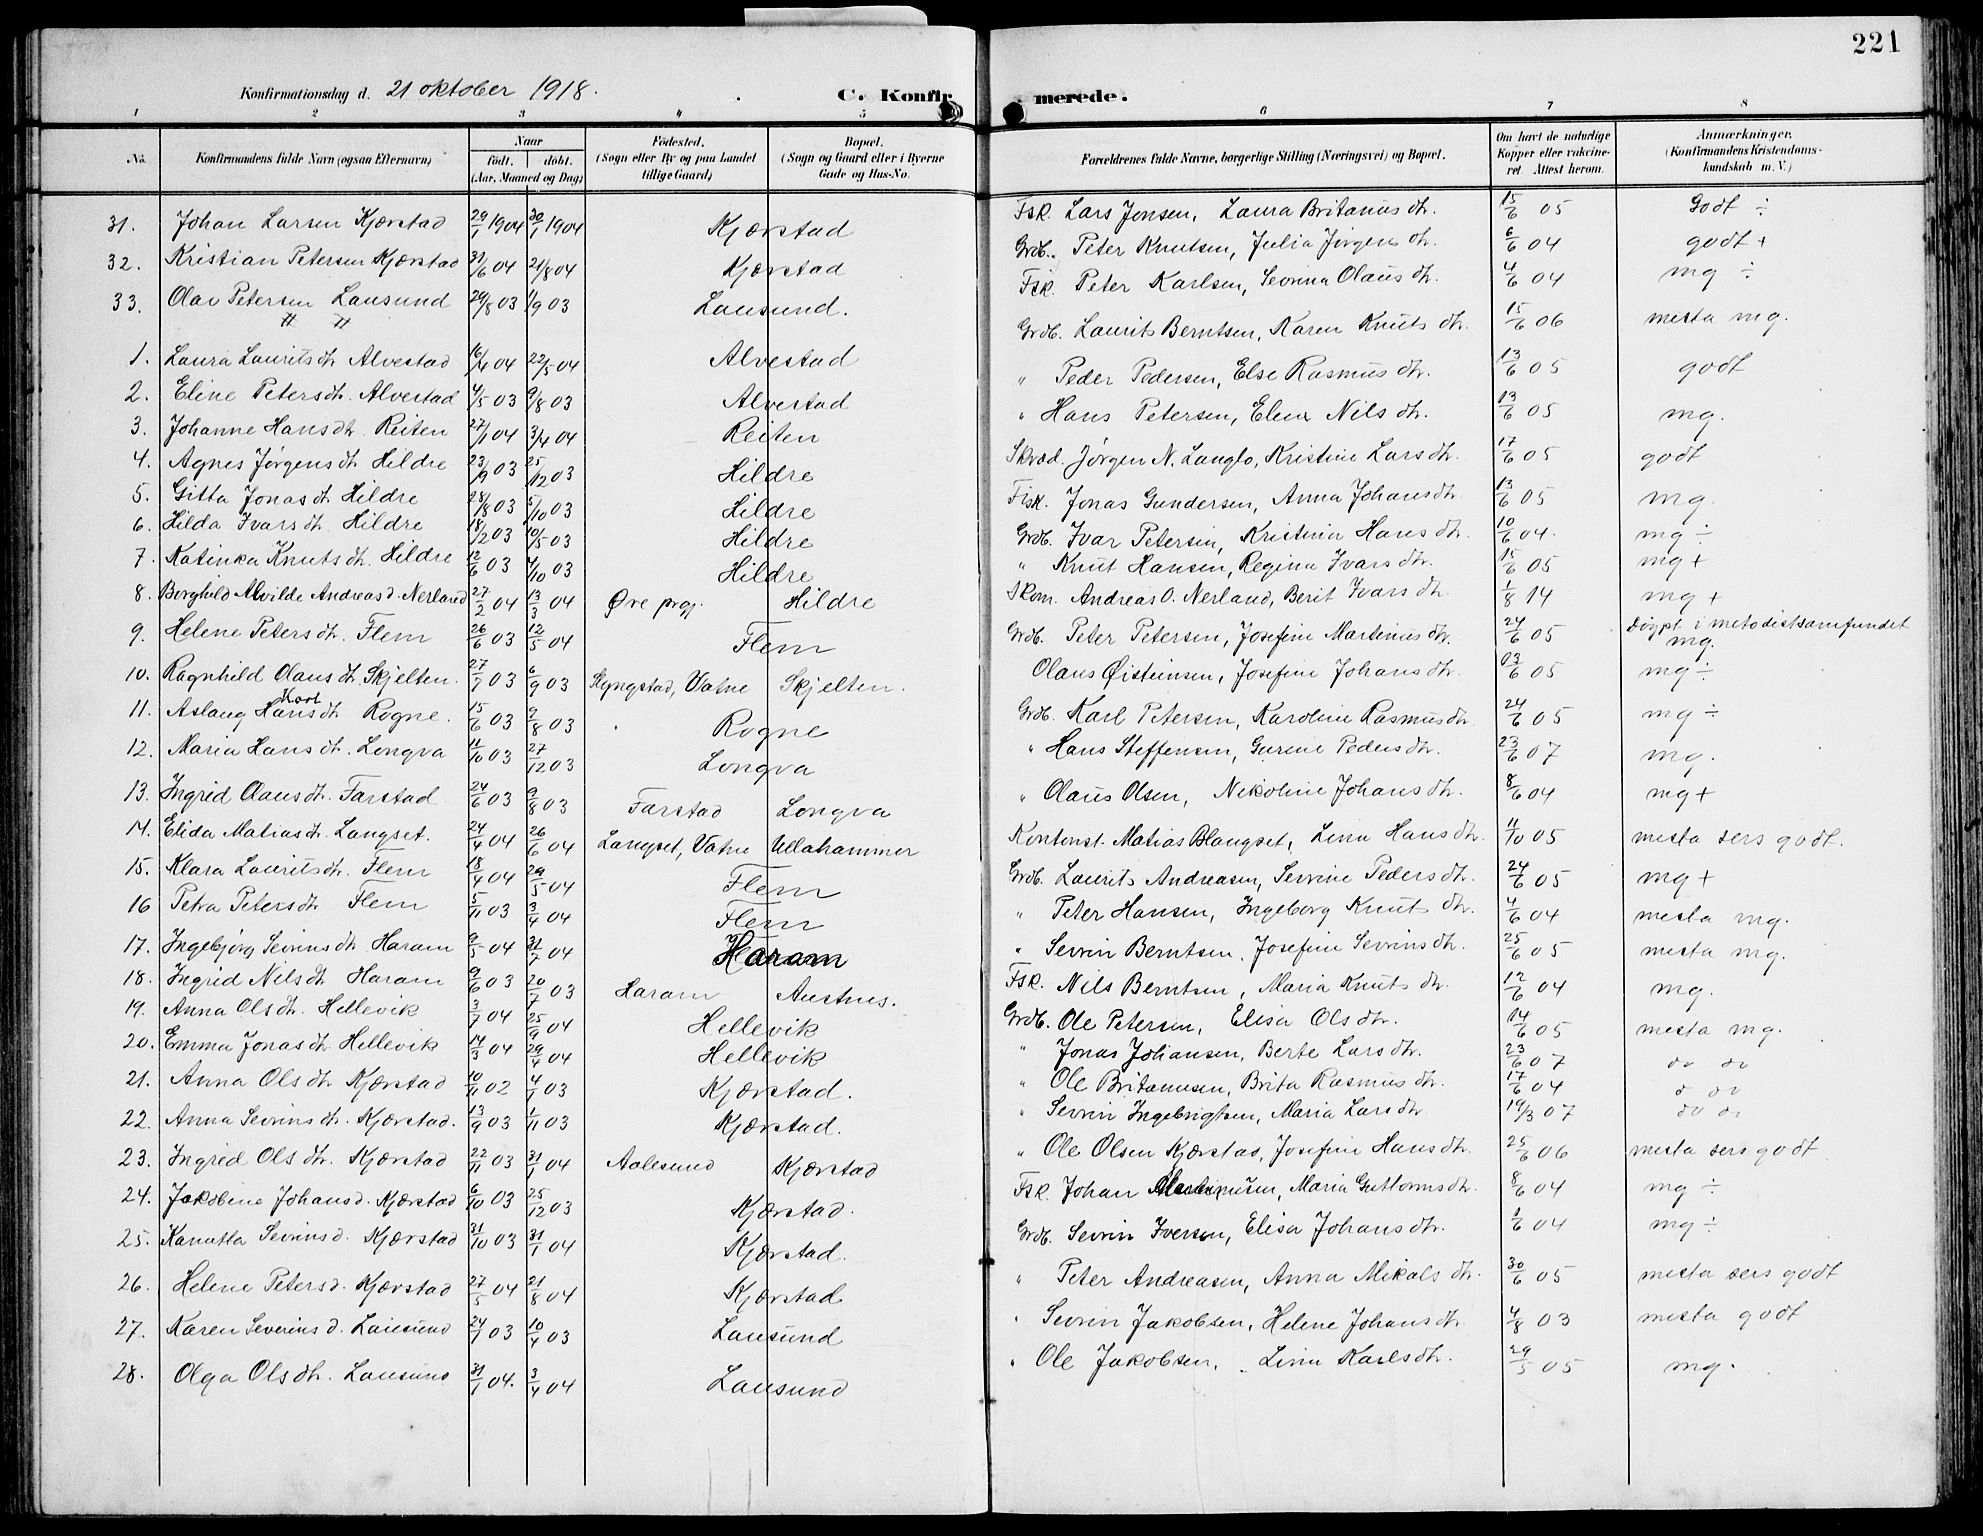 221
Konfirmationsdag d. 21 oktober 1918.
C. Konfir
merede.
1 2 3 4 5 6 7 8
No. Konfirmandens fulde Navn (ogsaa Efternavn) Naar födt. döbt. (Aar, Maaned og Dag) Födested. (Sogn eller By og paa Landet tillige Gaard) Bopæl. (Sogn og Gaard eller i Byerne Gade og Hus-No. Forældrenes fulde Navne, borgerlige Stilling (Næringsvei) og Bopæl. Om havt de naturlige Kopper eller vakcineret. Attest herom. Anmærkninger. (Konfirmandens Kristendomskundskab m. V.)
31. Johan Larsen Kjærstad 29/1 1904 30/1 1904 Kjærstad Fsk. Lars Jonsen, Laura Britanus dtr. 15/6 05 Godt ÷
32. Kristian Petersen Kjærstad 31/6 04 21/8 04 Kjærstad Grdb. Peter Knutsen, Julia Jørgens dtr. 6/6 04 godt +
33. Olav Petersen Lausund 29/8 03 1/9 03 Lausund. Fsk. Peter Karlsen, Sevrina Olaus dtr. 4/6 04 mg ÷
1. Laura Laurits dtr Alvestad 16/4 04 22/5 04 Alvestad Grdb. Laurits Berntsen, Karen Knuts dtr. 15/6 06 mesta mg.
2. Eline Peters dtr. Alvestad 4/5 03 9/8 03 Alvestad " Peder Pedersen, Else Rasmus dtr. 13/6 05 godt
3. Johanne Hans dtr. Reiten 27/1 04 3/4 04 Reiten " Hans Petersen, Elen Nils dtr. 13/6 05 mg.
4. Agnes Jørgens dtr Hildre 23/9 03 25/12 03 Hildre Skræd. Jørgen N. Langlo, Kristine Lars dtr. 17/6 05 godt
5. Gitta Jonas dtr Hildre 28/8 03 5/10 03 Hildre Fisk. Jonas Gundersen, Anna Johans dtr. 13/6 05 mg.
6. Hilda Ivars dtr. Hildre 18/2 03 10/5 03 Hildre Grdb. Ivar Petersen, Kristina Hans dtr. 10/6 04. mg ÷
7. Katinka Knuts dtr. Hildre 12/6 03 4/10 03 Hildre " Knut Hansen, Regina Ivars dtr. 15/6 05 mg +
8. Borghild Alvilde Andreas d. Nerland 27/2 04 13/3 04 Øre prgj. Hildre Skom. Andreas O. Nerland, Berit Ivars dtr. 1/8 14 mg +
9. Helene Peters dtr. Flem 26/6 03 12/5 04 Flem Grdb. Peter Petersen, Josefine Martinus dtr. 24/6 05 Døypt i metodistsamfundet mg.
10. Ragnhild Olaus dtr. Skjelten. 27/7 03 6/9 03 Slyngstad, Vatne Skjelten. Olaus Øisteinsen, Josefine Johans dtr. 03/6 05 mg ÷
11. Aslaug Karl Hans dtr Rogne. 15/6 03 9/8 03 Rogne Grdb. Karl Petersen, Karoline Rasmus dtr. 24/6 05 mg ÷
12. Maria Hans dtr. Longva 11/10 03 27/12 03 Longva " Hans Steffensen, Gurine Peders dtr. 23/6 07 mg.
13. Ingrid Olaus dtr. Farstad 24/6 03 9/8 03 Farstad Longva " Olaus Olsen, Nikoline Johans dtr. 8/6 04 mg +
14. Elida Matias dtr. Langset. 24/4 04 26/6 04 Langset, Vatne Ullahammer Kontorist. Matias B Langset, Lina Hans dtr. 11/10 05 mesta sers godt.
15. Klara Laurits dtr. Flem 18/4 04 29/5 04 Flem Grdb. Laurits Andreasen, Sevrine Peders dtr. 24/6 05 mg +
16 Petra Peters dtr Flem 5/11 03 3/4 04 Flem " Peter Hansen, Ingeborg Knuts dtr. 4/6 04 mesta mg.
17. Ingebjørg Sevrins dtr. Haram 9/5 04 31/7 04 Haram " Sevrin Berntsen, Josefine Sevrins dtr. 25/6 05 mesta mg.
18. Ingrid Nils dtr Haram 9/6 03 20/7 03 Haram Austnes. Fsk. Nils Berntsen, Maria Knuts dtr. 12/6 04 mg.
19. Anna Ols dtr. Hellevik 3/7 04 25/9 04 Hellevik Grdb. Ole Petersen, Elisa Ols dtr. 14/6 05 mesta mg.
20. Emma Jonas dtr. Hellevik 14/3 04 29/4 04 Hellevik " Jonas Johansen, Berte Lars dtr. 23/6 07 do do
21. Anna Ols dtr Kjærstad 10/11 02 4/1 03 Kjærstad. " Ole Britanusen, Brita Rasmus dtr. 17/6 04 do do
22. Anna Sevrins dtr. Kjærstad. 13/9 03 1/11 03 Kjærstad. " Sevrin Ingebrigtsen, Maria Lars dtr 19/3 07 do do
23. Ingrid Ols dtr. Kjærstad 22/11 03 31/1 04 Aalesund Kjærstad " Ole Olsen Kjærstad, Josefine Hans dtr. 25/6 06 mesta sers godt
24. Jakobine Johans d. Kjærstad 6/10 03 25/12 03 Kjærstad. Fsk. Johan Martinusen, Maria Guttorms dtr. 8/6 04 mg ÷
25. Kanutta Sevrins d. Kjærstad 31/10 03 31/1 04 Kjærstad. Grdb. Sevrin Iversen, Elisa Johans dtr. 1/6 04 mg ÷
26. Helene Peters d. Kjærstad 27/5 04 21/8 04 Kjærstad " Peter Andreasen, Anna Mikals dtr. 30/6 05 mesta sers godt
27. Karen Severins d. Lausund 24/1 03 10/4 03 Lausund " Sevrin Jakobsen, Helene Johans dtr. 4/8 03 mesta godt
28. Olga Ols dtr. Lausund 31/1 04. 3/4 04 Lausund " Ole Jakobsen, Lina Karls dtr. 29/5 05 mg.